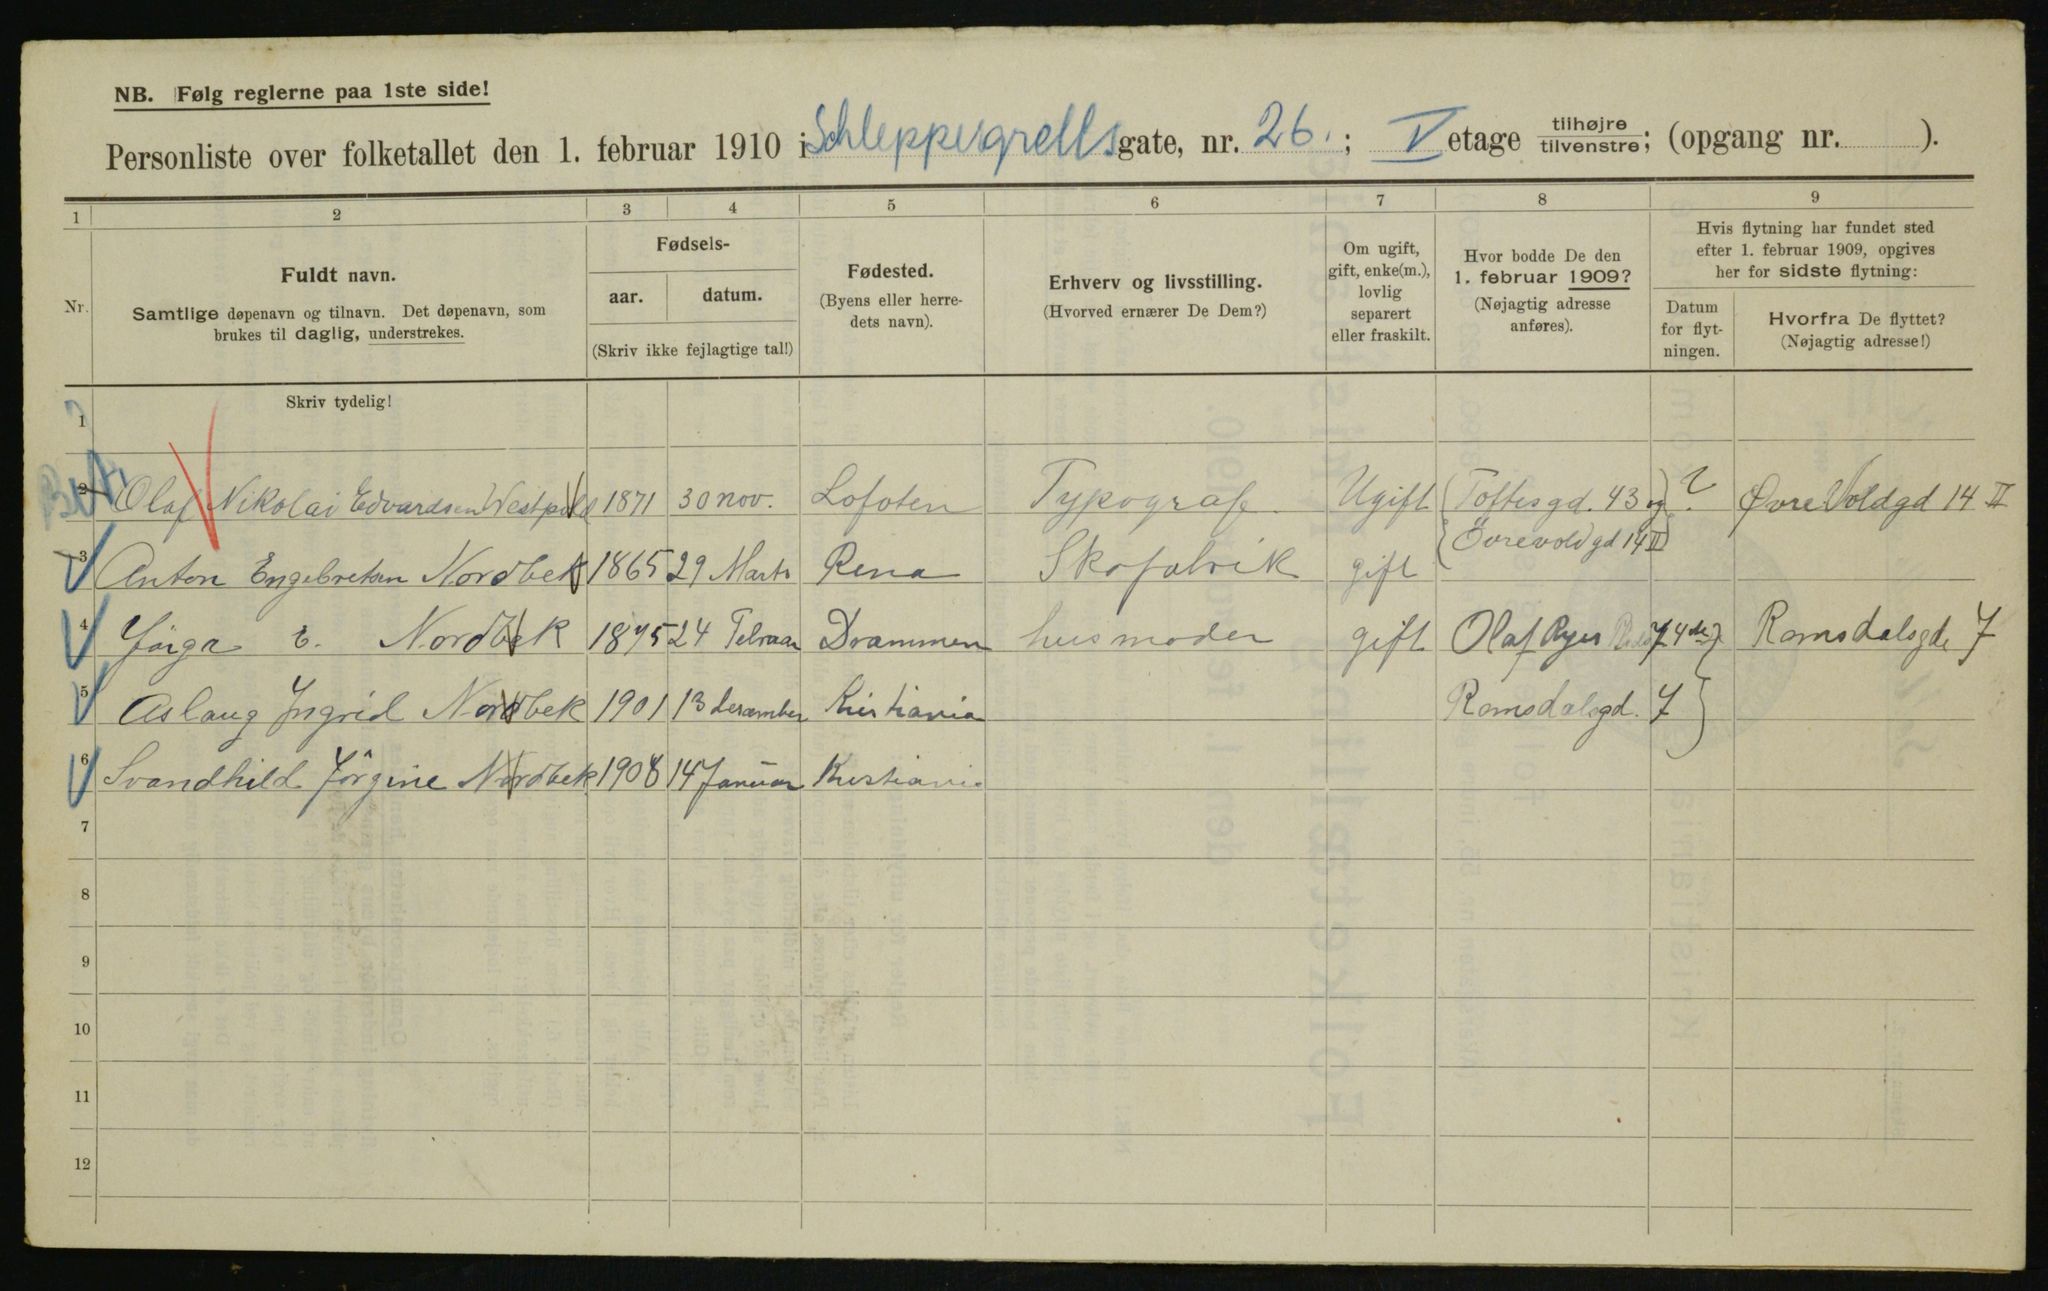 NB. Følg reglerne paa 1ste side!
Personliste over folketallet den 1. februar 1910 i Schleppegrellsgate, nr. 26. ; V etage tilhøjre tilvenstre; (opgang nr. ).
1 2 3 4 5 6 7 8 9
Nr.
Fuldt navn.
Samtlige døpenavn og tilnavn. Det døpenavn, som
brukes til daglig, understrekes.
Fødsels-
aar. datum.
(Skriv ikke fejlagtige tal!)
Fødested.
(Byens eller herre-
dets navn).
Erhverv og livsstilling.
(Hvorved ernærer De Dem?)
Om ugift,
gift, enke(m.),
lovlig
separert
eller fraskilt.
Hvor bodde De den
1. februar 1909?
(Nøjagtig adresse
anføres).
Hvis flytning har fundet sted
efter 1. februar 1909, opgives
her for sidste flytning:
Datum
for flyt-
ningen.
Hvorfra De flyttet?
(Nøjagtig adresse!)
Skriv tydelig!
1
2 Olaf Nikolai Edvardsen 1871 30 nov. Lofoten Typograf Ugift Toftesgd. 43 og ? Øvre Voldgd 14 II
Övrevoldgd 14 II
3 Anton Engebretsen Nordbek 1865 29 Marts Rena Skofabrik gift
4 Nordbek 1875 24 Februar Drammen husmoder gift Olaf Ryes 7 4de Romsdalsgd 7
5 Aslaug Ingrid Nordbek 1901 13 desember Kristiania Romsdalsgd. 7
6 Svandhild Jörgine Nordbek 1908 14 Januar Kristiania
7
8
9
10
11
12